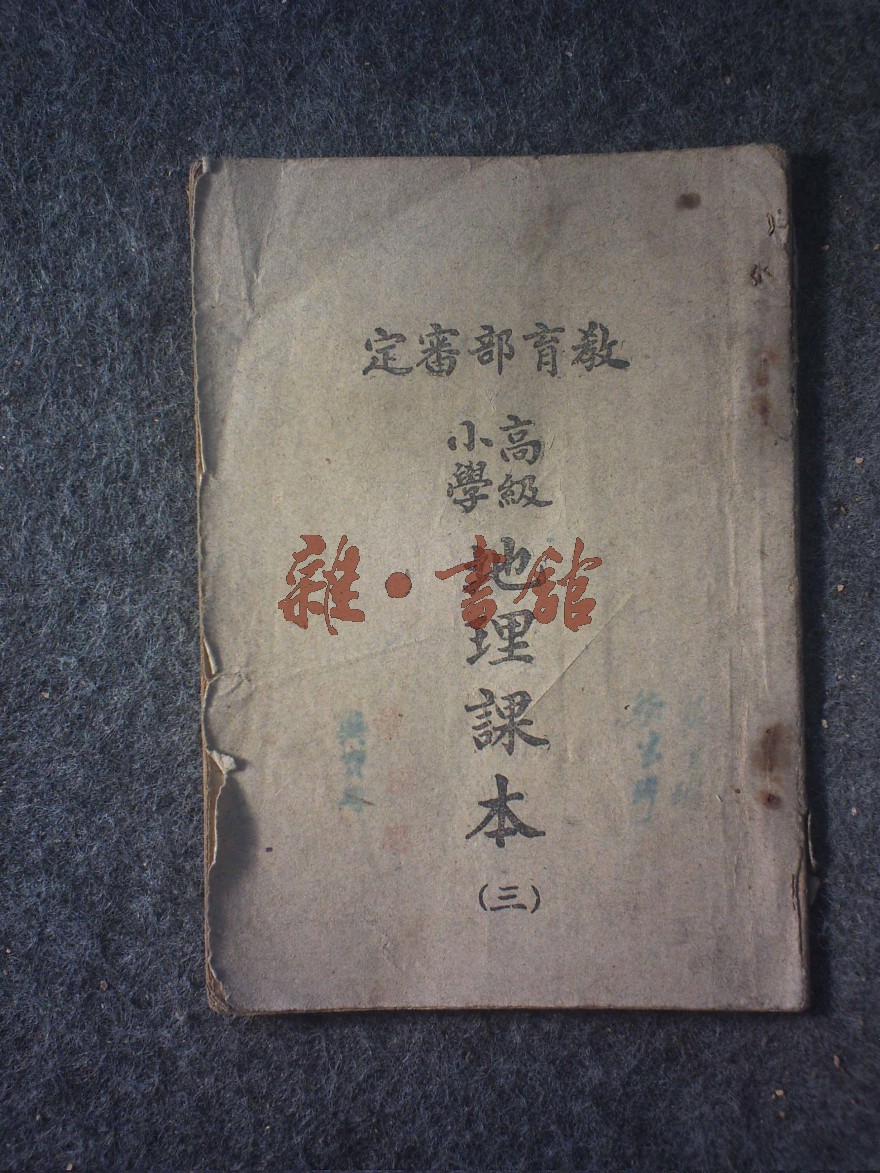 教育部審定
高級
小學
地理課本
（三）
雜·書館